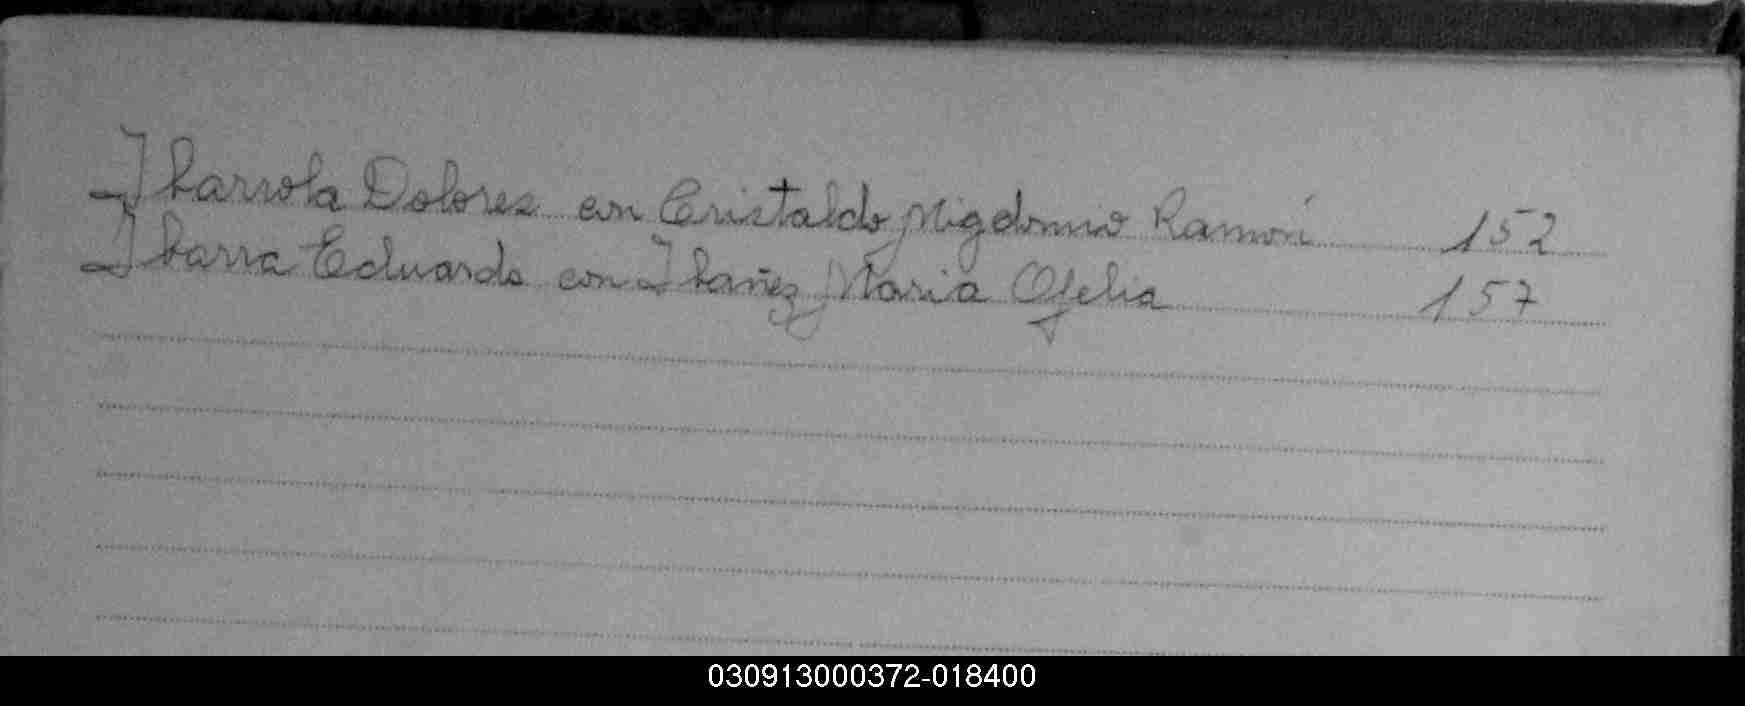 Ibarrola Dolores con Cristaldo Migdonio Ramón 152
Ibarra Eduardo con Ibañez Maria Ofelia 157
030913000372-018400